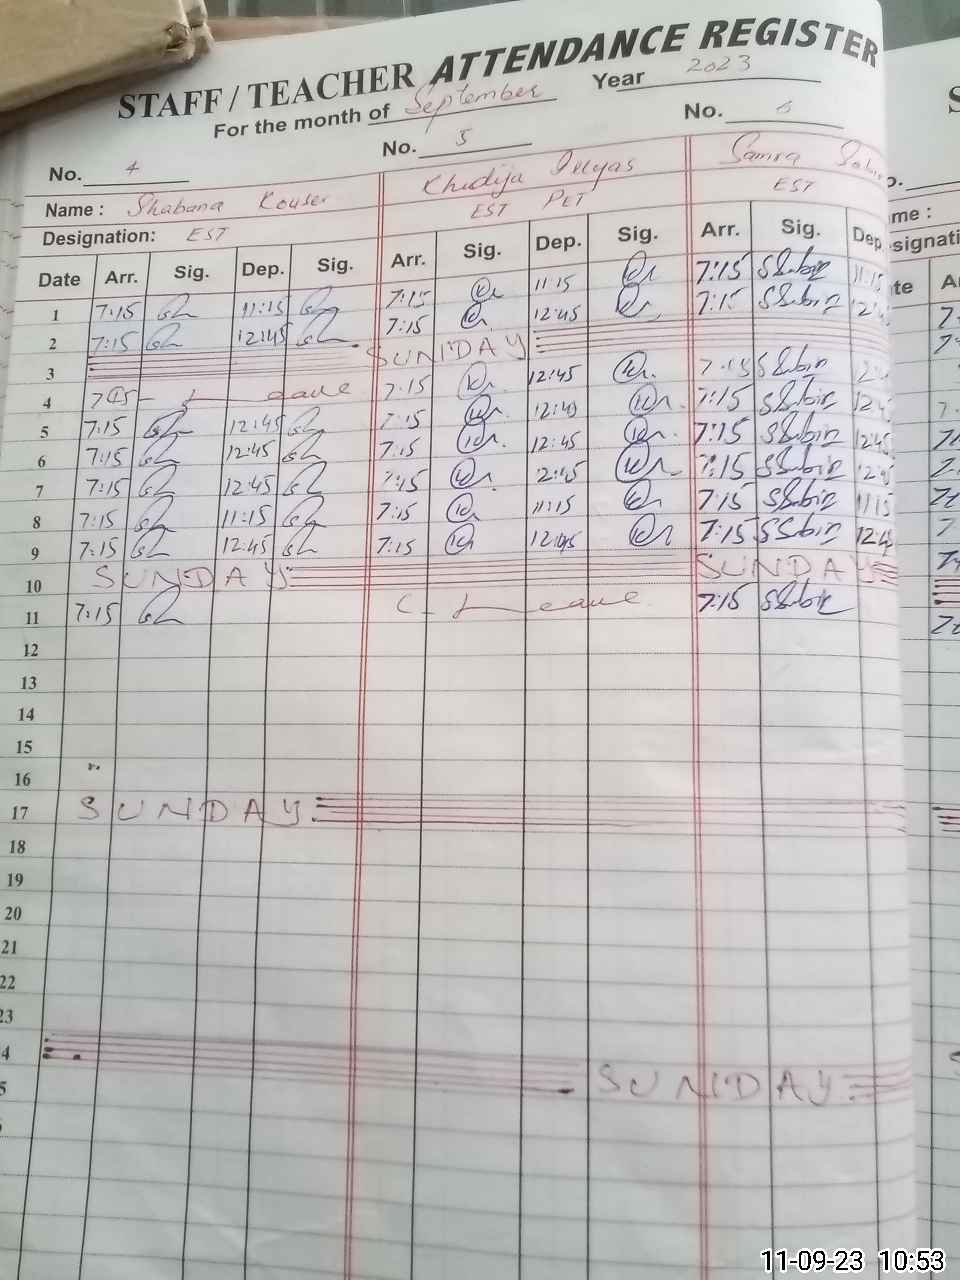 STAFF / TEACHER ATTENDANCE REGISTER
For the month of September Year 2023
No. 4 No. 5 No. 6
Name : Shabana Kouser Khadija Illyas Samra
Designation: EST EST PET EST
Date Arr. Sig. Dep. Sig. Arr. Sig. Dep. Sig. Arr. Sig. Dep
1 7:15 11:15 7:15 11:15 7:15 SSabir 11:15
2 7:15 12:45 7:15 12:45 7:15 SSabir
3 SUNDAY
4 Leave 7:15 12:45 7:15 SSabir
5 7:15 12:45 7:15 12:45 7:15 SSabir
6 7:15 12:45 7:15 12:45 7:15 SSabir 12:45
7 7:15 12:45 7:15 12:45 7:15 SSabir 12:45
8 7:15 11:15 7:15 11:15 7:15 SSabir 11:15
9 7:15 12:45 7:15 12:45 7:15 SSabir 12:45
10 SUNDAY SUNDAY
11 7:15 C-Leave 7:15 SSabir
12
13
14
15
16
17 SUNDAY
18
19
20
21
22
23
4 SUNDAY
5
me :
signati
te
11-09-23 10:53